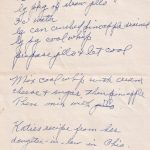 1 pkg of straw jello
Fix with
lg can crushed pineapple drained
lg pkg cool whip
prepare jello & let cool
Mix cool whip with cream
cheese & sugar then pineapple
Then mix with jello
Katie's recipe from her
daughter-in-law in Ohio